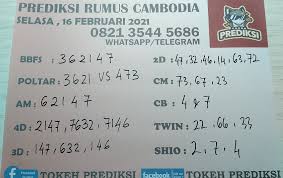 PREDIKSI RUMUS CAMBODIA
SELASA, 16 FEBRUARI 2021
0821 3544 5686
WHATSAPP/TELEGRAM
PREDIKSI
BBFS : 362147
2D : 47, 32, 46, 14, 63, 72
POLTAR : 3621 VS 473
CM : 73, 67, 23
AM : 62147
CB : 4 & 7
4D : 2147, 7632, 7146
TWIN : 22, 66, 33
3D : 147, 632, 146
SHIO : 2, 7, 4
TOKEH PREDIKSI
facebook
TOKEH PREDIKSI